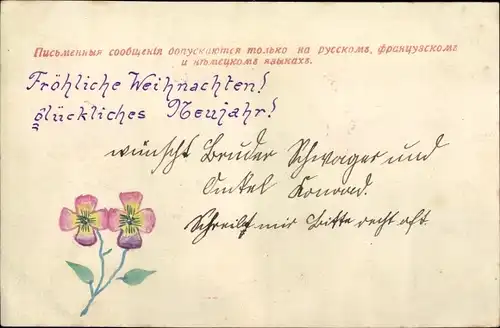 Письменныя сообщенія допускаются только на русскомъ, французскомъ
и нѣмецкомъ языкахъ.
Fröhliche Weihnachten!
glückliches Neujahr!
wünscht Bruder Schwager und
Onkel Konrad.
Schreibt mir Bitte recht oft.